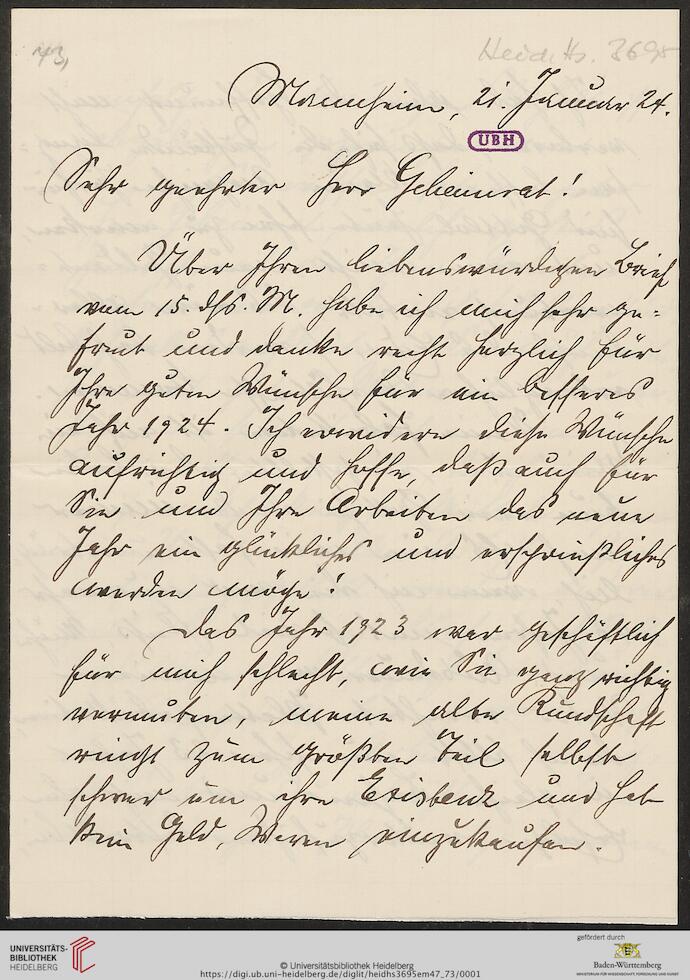 73,
Heid. Hs. 3695
Mannheim, 21. Januar 24.
UBH
Sehr geehrter Herr Geheimrat!
Über Ihren liebenswürdigen Brief
vom 15. dss. M. habe ich mich sehr ge-
freut und danke recht herzlich für
Ihre guten Wünsche für ein besseres
Jahr 1924. Ich erwidere diese Wünsche
aufrichtig und hoffe, daß auch für
Sie und Ihre Arbeiten das neue
Jahr ein glückliches und ersprießliches
werden möge!
Das Jahr 1923 war geschäftlich
für mich schlecht, wie Sie ganz richtig
vermuten, meine alte Kundschaft
ringt zum größten Teil selbst
schwer um ihre Existenz und hat
kein Geld, Waren einzukaufen.
UNIVERSITÄTS-
BIBLIOTHEK
HEIDELBERG
© Universitätsbibliothek Heidelberg
https://digi.ub.uni-heidelberg.de/diglit/heidhs3695em47_73/0001
gefördert durch
Baden-Württemberg
MINISTERIUM FÜR WISSENSCHAFT, FORSCHUNG UND KUNST